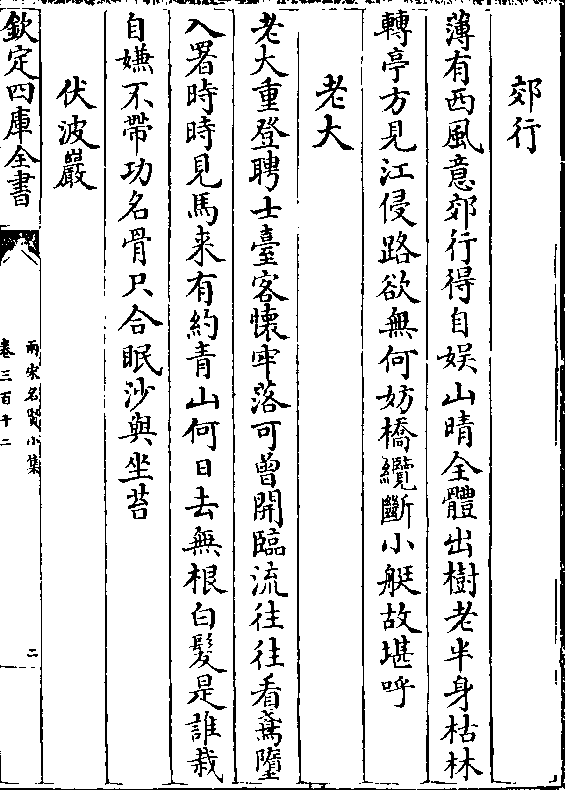 郊行
薄有西風意郊行得自娯山晴全體出樹老半身枯林
轉亭方見江侵路欲無何妨橋纜斷小艇故堪呼
老大
老大重登聘士臺客懷牢落可曾開臨流往往看鳶墮
入署時時見馬来有約青山何日去無根白髮是誰栽
自嫌不帶功名骨只合眠沙與坐苔
伏波巖
欽定四庫全書
兩宋名賢小集
卷三百十二
二